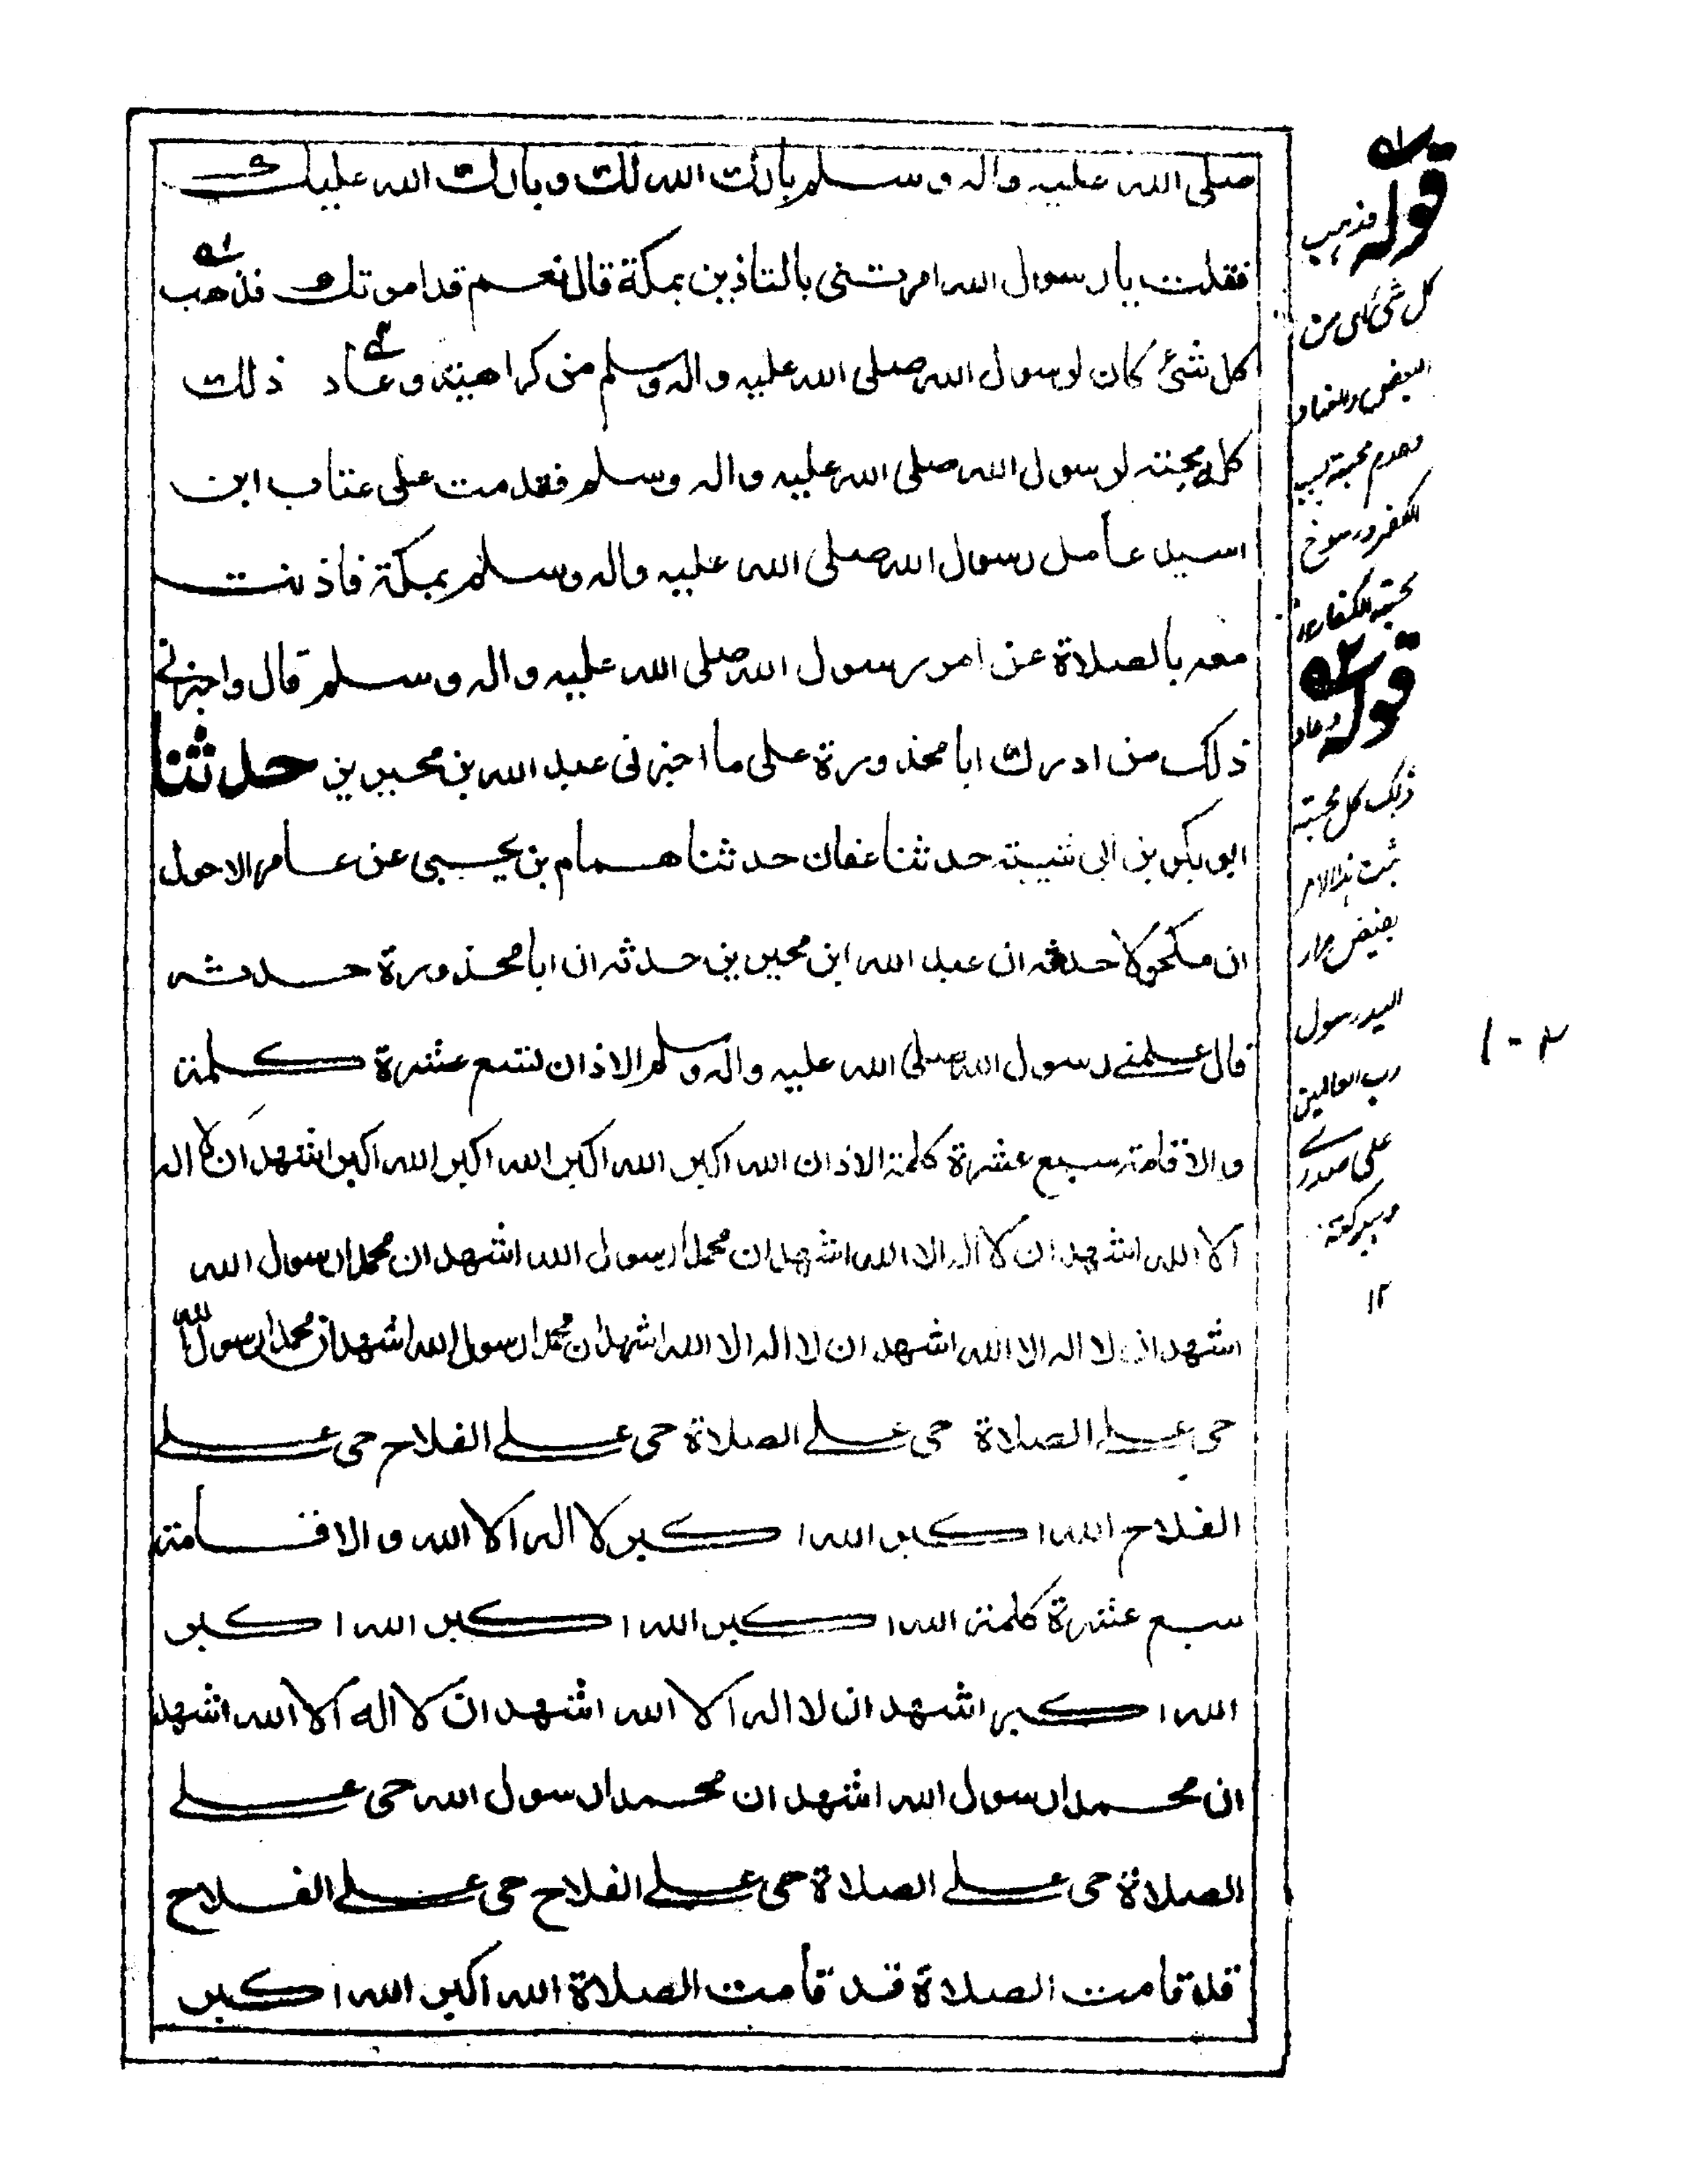 صلى الله عليه واله وسلم بارك الله لك وبارك الله عليك
فقلت يا رسول الله امرتنى بالتاذين بمكة قال نعم قد امرتك فذهب
كل شئ كان لرسول الله صلى الله عليه واله وسلم من كراهية وعاد ذلك
كله محبة لرسول الله صلى الله عليه واله وسلم فقدمت على عتاب ابن
اسيد عامل رسول الله صلى الله عليه واله وسلم بمكة فاذنت
معه بالصلاة عن امر رسول الله صلى الله عليه واله وسلم قال واخبرنى
ذلك من ادرك ابا محذورة على ما اخبرنى عبد الله بن محيريز حدثنا
ابو بكر بن ابى شيبة حدثنا عفان حدثنا همام بن يحيى عن عامر الاحول
ان مكحولا حدثه ان عبد الله ابن محيريز حدثه ان ابا محذورة حدثه
قال علمنى رسول الله صلى الله عليه واله وسلم الاذان تسع عشرة كلمة
والاقامة سبع عشرة كلمة الاذان الله اكبر الله اكبر الله اكبر الله اكبر اشهد ان لا اله
الا الله اشهد ان لا اله الا الله اشهد ان محمدا رسول الله اشهد ان محمدا رسول الله
اشهد ان لا اله الا الله اشهد ان لا اله الا الله اشهد ان محمدا رسول الله اشهد ان محمدا رسول الله
حى على الصلاة حى على الصلاة حى على الفلاح حى على
الفلاح الله اكبر الله اكبر لا اله الا الله والاقامة
سبع عشرة كلمة الله اكبر الله اكبر الله اكبر
الله اكبر اشهد ان لا اله الا الله اشهد ان لا اله الا الله اشهد
ان محمدا رسول الله اشهد ان محمدا رسول الله حى على
الصلاة حى على الصلاة حى على الفلاح حى على الفلاح
قد قامت الصلاة قد قامت الصلاة الله اكبر الله اكبر
قوله فذهب
كل شئ اى من
البغض والعناد
وعدم محبة
الكفر ورسوخ
محبة الكفار
قوله وعاد
ذلك كل محبة
ثبت هذا الامر
بفيض مرار
اليد رسول
رب العالمين
على صدرى
وببركته
١٢
١٠٢